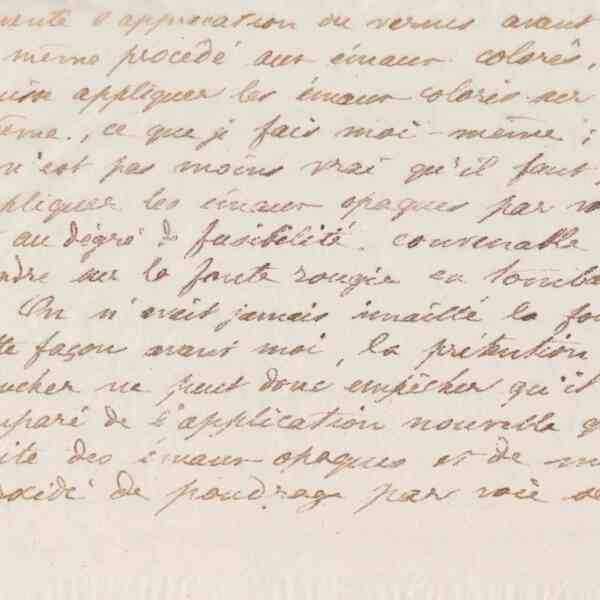 d'application du vernis avant
même procédé aux émaux colorés,
appliquer les émaux colorés sur
ême, ce que je fais moi-même ;
n'est pas moins vrai qu'il faut
pliquer les émaux opaques par vo
au dégré de fusibilité convenable
ndre sur la fonte rougie en tomba
On n'avait jamais émaillé la fon
tte façon avant moi, la prétention
ucher ne peut donc empêcher qu'il
mparé de l'application nouvelle q
ite des émaux opaques et de m
océdé de poudrage par voie sè